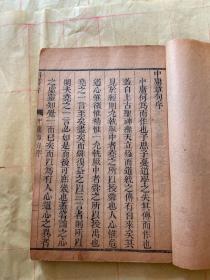 中庸章句序
中庸何為而作也子思子憂道學之失其傳而作也
蓋自上古聖神繼天立極而道統之傳有自來矣其
見於經則允執厥中者堯之所以授舜也人心惟危
道心惟微惟精惟一允執厥中者舜之所以授禹也
堯之一言至矣盡矣而舜復益之以三言者則所以
明夫堯之一言必如是而後可庶幾也蓋嘗論之心
之虛靈知覺一而已矣而以為有人心道心之異者